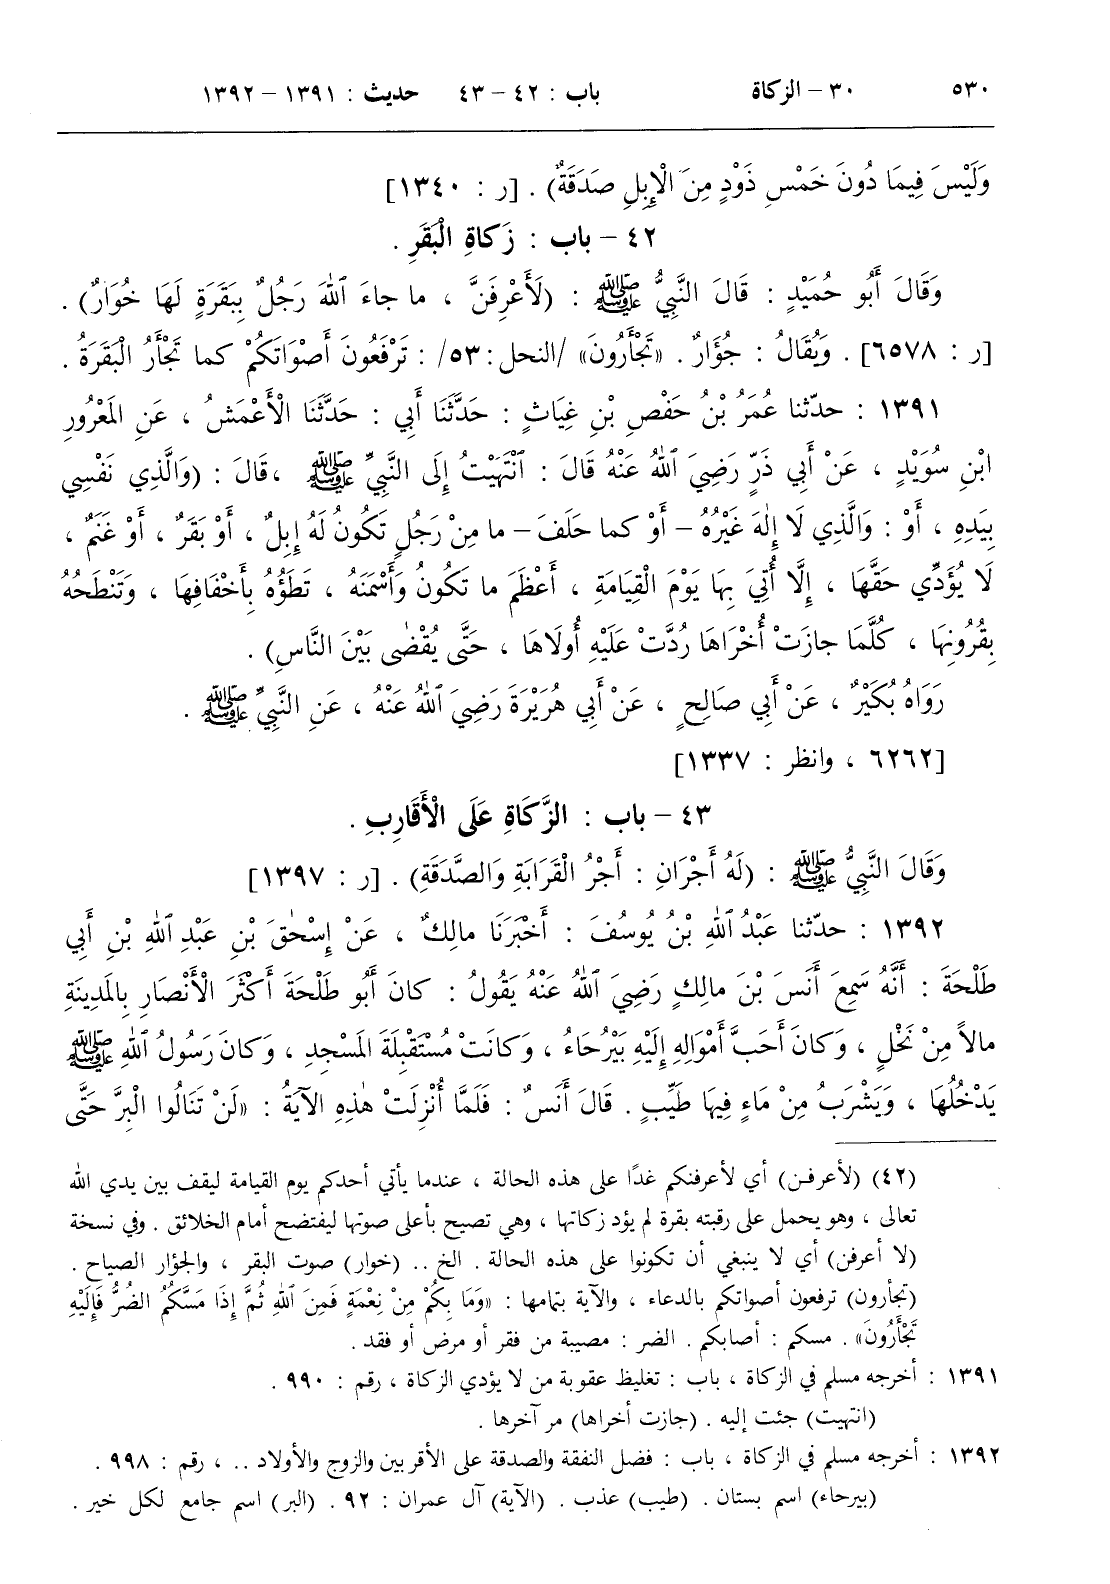 ٥٣٠ ٣٠ – الزكاة باب : ٤٢ – ٤٣ حديث : ١٣٩١ – ١٣٩٢
وَلَيْسَ فِيمَا دُونَ خَمْسِ ذَوْدٍ مِنَ الْإِبِلِ صَدَقَةٌ) . [ر : ١٣٤٠]
٤٢ – باب : زَكاةِ الْبَقَرِ .
وَقَالَ أَبُو حُمَيْدٍ : قَالَ النَّبِيُّ ﷺ : (لَأَعْرِفَنَّ ، ما جاءَ ٱللهَ رَجُلٌ بِبَقَرَةٍ لَهَا خُوَارٌ) .
[ر : ٦٥٧٨] . وَيُقَالُ : جُؤَارٌ . «تَجْأَرُونَ» /النحل: ٥٣/ : تَرْفَعُونَ أَصْوَاتَكُمْ كما تَجْأَرُ الْبَقَرَةُ .
١٣٩١ : حدّثنا عُمَرُ بْنُ حَفْصِ بْنِ غِيَاثٍ : حَدَّثَنَا أَبِي : حَدَّثَنَا الْأَعْمَشُ ، عَنِ المَعْرُورِ
ابْنِ سُوَيْدٍ ، عَنْ أَبِي ذَرٍّ رَضِيَ ٱللهُ عَنْهُ قَالَ : ٱنْتَهَيْتُ إِلَى النَّبِيِّ ﷺ ، قَالَ : (وَالَّذِي نَفْسِي
بِيَدِهِ ، أَوْ : وَالَّذِي لَا إِلٰهَ غَيْرُهُ – أَوْ كما حَلَفَ – ما مِنْ رَجُلٍ تَكُونُ لَهُ إِبِلٌ ، أَوْ بَقَرٌ ، أَوْ غَنَمٌ ،
لَا يُؤَدِّي حَقَّهَا ، إِلَّا أُتِيَ بِهَا يَوْمَ الْقِيَامَةِ ، أَعْظَمَ ما تَكُونُ وَأَسْمَنَهُ ، تَطَؤُهُ بِأَخْفَافِهَا ، وَتَنْطَحُهُ
بِقُرُونِهَا ، كُلَّمَا جازَتْ أُخْرَاهَا رُدَّتْ عَلَيْهِ أُولَاهَا ، حَتَّى يُقْضٰى بَيْنَ النَّاسِ) .
رَوَاهُ بُكَيْرٌ ، عَنْ أَبِي صَالِحٍ ، عَنْ أَبِي هُرَيْرَةَ رَضِيَ ٱللهُ عَنْهُ ، عَنِ النَّبِيِّ ﷺ .
[٦٢٦٢ ، وانظر : ١٣٣٧]
٤٣ – باب : الزَّكَاةِ عَلَى الْأَقَارِبِ .
وَقَالَ النَّبِيُّ ﷺ : (لَهُ أَجْرَانِ : أَجْرُ الْقَرَابَةِ وَالصَّدَقَةِ) . [ر : ١٣٩٧]
١٣٩٢ : حدّثنا عَبْدُ ٱللهِ بْنُ يُوسُفَ : أَخْبَرَنَا مالِكٌ ، عَنْ إِسْحٰقَ بْنِ عَبْدِ ٱللهِ بْنِ أَبِي
طَلْحَةَ : أَنَّهُ سَمِعَ أَنَسَ بْنَ مالِكٍ رَضِيَ ٱللهُ عَنْهُ يَقُولُ : كانَ أَبُو طَلْحَةَ أَكْثَرَ الْأَنْصَارِ بِالمَدِينَةِ
مالاً مِنْ نَخْلٍ ، وَكانَ أَحَبَّ أَمْوَالِهِ إِلَيْهِ بَيْرُحَاءُ ، وَكانَتْ مُسْتَقْبِلَةَ المَسْجِدِ ، وَكانَ رَسُولُ ٱللهِ ﷺ
يَدْخُلُهَا ، وَيَشْرَبُ مِنْ مَاءٍ فِيهَا طَيِّبٍ . قَالَ أَنَسٌ : فَلَمَّا أُنْزِلَتْ هٰذِهِ الآيَةُ : «لَنْ تَنَالُوا الْبِرَّ حَتَّى
(٤٢) (لأعرفـن) أي لأعرفنكم غدًا على هذه الحالة ، عندما يأتي أحدكم يوم القيامة ليقف بين يدي الله
تعالى ، وهو يحمل على رقبته بقرة لم يؤد زكاتها ، وهي تصيح بأعلى صوتها ليفتضح أمام الخلائق . وفي نسخة
(لا أعرفن) أي لا ينبغي أن تكونوا على هذه الحالة . الخ .. (خوار) صوت البقر ، والجؤار الصياح .
(تجأرون) ترفعون أصواتكم بالدعاء ، والآية بتمامها : «وَمَا بِكُمْ مِنْ نِعْمَةٍ فَمِنَ ٱللهِ ثُمَّ إِذَا مَسَّكُمُ الضُّرُّ فَإِلَيْهِ
تَجْأَرُونَ» . مسكم : أصابكم . الضر : مصيبة من فقر أو مرض أو فقد .
١٣٩١ : أخرجه مسلم في الزكاة ، باب : تغليظ عقوبة من لا يؤدي الزكاة ، رقم : ٩٩٠ .
(انتهيت) جئت إليه . (جازت أخراها) مر آخرها .
١٣٩٢ : أخرجه مسلم في الزكاة ، باب : فضل النفقة والصدقة على الأقربين والزوج والأولاد .. ، رقم : ٩٩٨ .
(بيرحاء) اسم بستان . (طيب) عذب . (الآية) آل عمران : ٩٢ . (البر) اسم جامع لكل خير .